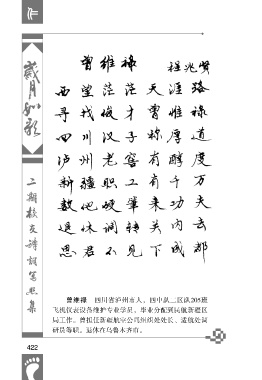 作
岁月如歌
二期校友诗词写照集
曾维禄
程兆贤
西望茫茫天涯路
寻找俊才曾惟禄
四川汉子称厚道
泸州老窖有醇度
新疆职工有千万
数他硬肇来功夫
退休调转关内去
思君不见下成都
曾维禄　四川省泸州市人。四中队二区队205班
飞机仪表设备维护专业学员。毕业分配到民航新疆区
局工作。曾担任新疆航空公司组织处处长、适航处调
研员等职。退休在乌鲁木齐市。
422